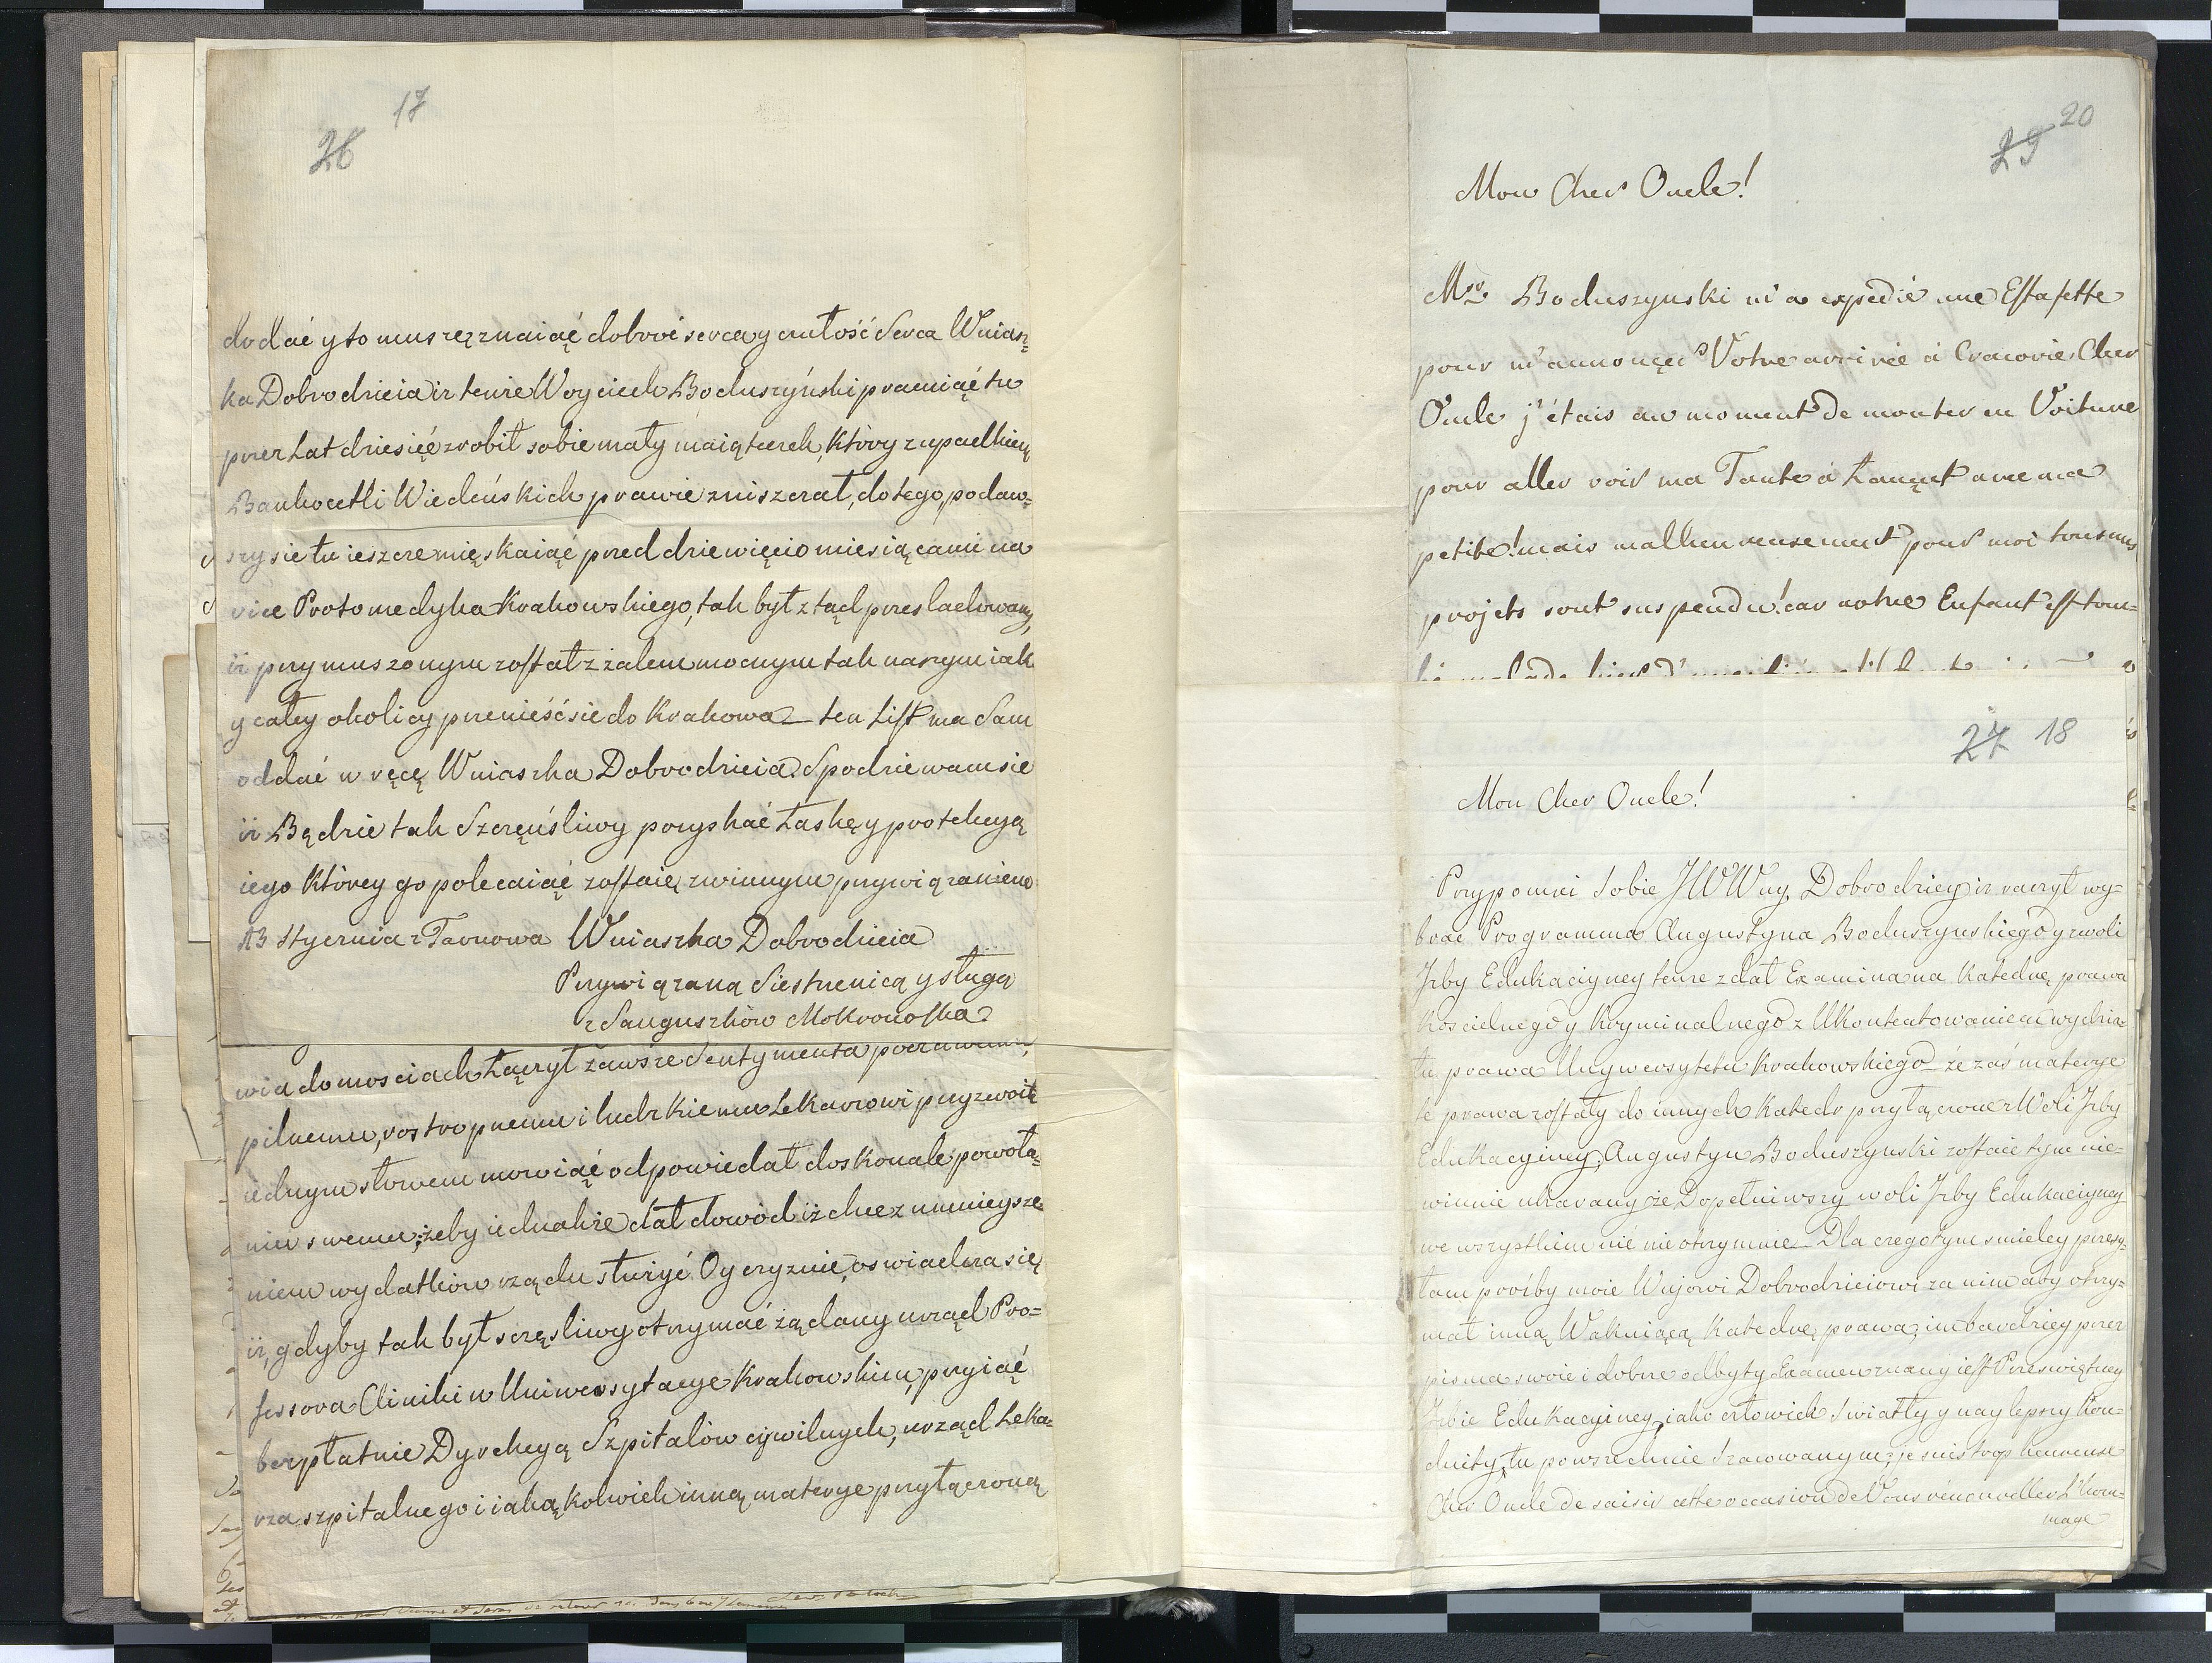 17
26
dodać y to muszę znaiąć dobroć serca y czułość Serca Wuiasz=
ka Dobrodzieia iż tenże Woyciech Boduszyński pracuiąć tu
przez Lat dziesięć zrobił sobie mały maiąteczek, który z upadkiem
Bankocetli Wiedeńskich prawie zniszczał, do tego, podaw=
szy sie tu ieszcze mięskaiąć pred dziewięcio miesiącami na
vice Protomedyka Krakowskiego, tak był z tąd przesladowany,
iż przymuszonym zostat z żalem mocnym tak naszym iak
y całey okolicy przenieść sie do Krakowa — ten List ma Sam
oddać w ręcę Wuiaszka Dobrodzieia. Spodziewam sie
iż Będzie tak Szczęśliwy pozyskać Łaskę y protekcyą
iego którey go polecaiąć zostaię z winnym przywiązaniem
13 stycznia z Tarnowa Wuiaszka Dobrodzieia
Przywiązaną Siestrzenicą y sługą
z Sanguszków Mokronoska
wiadomosciach Łączył zawsze Sentymenta
pilnemu, rostropnemu i ludzkiemu Lekarzowi przyzwoite
iednym słowem mowiąć odpowiedał doskonale powoła=
niu swemu; żeby iednakże dał dowód iż chce z umnieysze=
niem wydatków rządu służyć Oyczyznie, oswiadcza się
iż, gdyby tak był sczęsliwy otrzymać żądany urząd Pro=
fessora Cliniki w Uniwersytacye Krakowskim, przyiąć
bezpłatnie Dyrekcyą Szpitalów cywilnych, urząd Leka=
rza szpitalnego i iakąkolwiek inną materye przyłączoną
20
29
Mon Cher Oncle!
Msr. Boduszynski m'a expedié une Estafette
pour m'annonçer Votre arrivée à Cracovie Cher
Oncle j'étais au moment de monter en Voiture
pour aller voir ma Tante à Łançut avec ma
petite! mais malheureusement pour moi tous mes
projets sont suspendu! car notre Enfant est tom=
27 18
Mon Cher Oncle!
Przypomni sobie JWWuy Dobrodziey iż raczył wy=
brać Programma Augustyna Boduszynskiego y z woli
Jzby Edukacyiney tenże zdał Examina na Katedrę prawa
Koscielnego y Kryminalnego z Ukontentowaniem wydzia=
łu prawa Uniwersytetu Krakowskiego — że zaś materye
te prawa zostały do innych Katedr przyłączone z Woli Jzby
Edukacyiney, Augustyn Boduszynski zostaie tym nie=
winnie ukarany że Dopełniwszy woli Jzby Edukacyiney
we wszystkim nić nie otrzymuie — Dla czego tym smieley przesy=
łam prośby moie Wujowi Dobrodzieiowi za nim aby otrzy=
mał inną Wakuiącą Katedrę prawa; im bardziey przez
pisma swoie i dobrze odbyty Examen znany iest Przeświętney
Jzbie Edukacyiney, iako człowiek Swiatły y naylepszey Kon=
duity, tu powszechnie Szacowanym; je suis trop heureuse
Cher Oncle de saisir cette occasion de Vous rénouveller L'hom=
mage